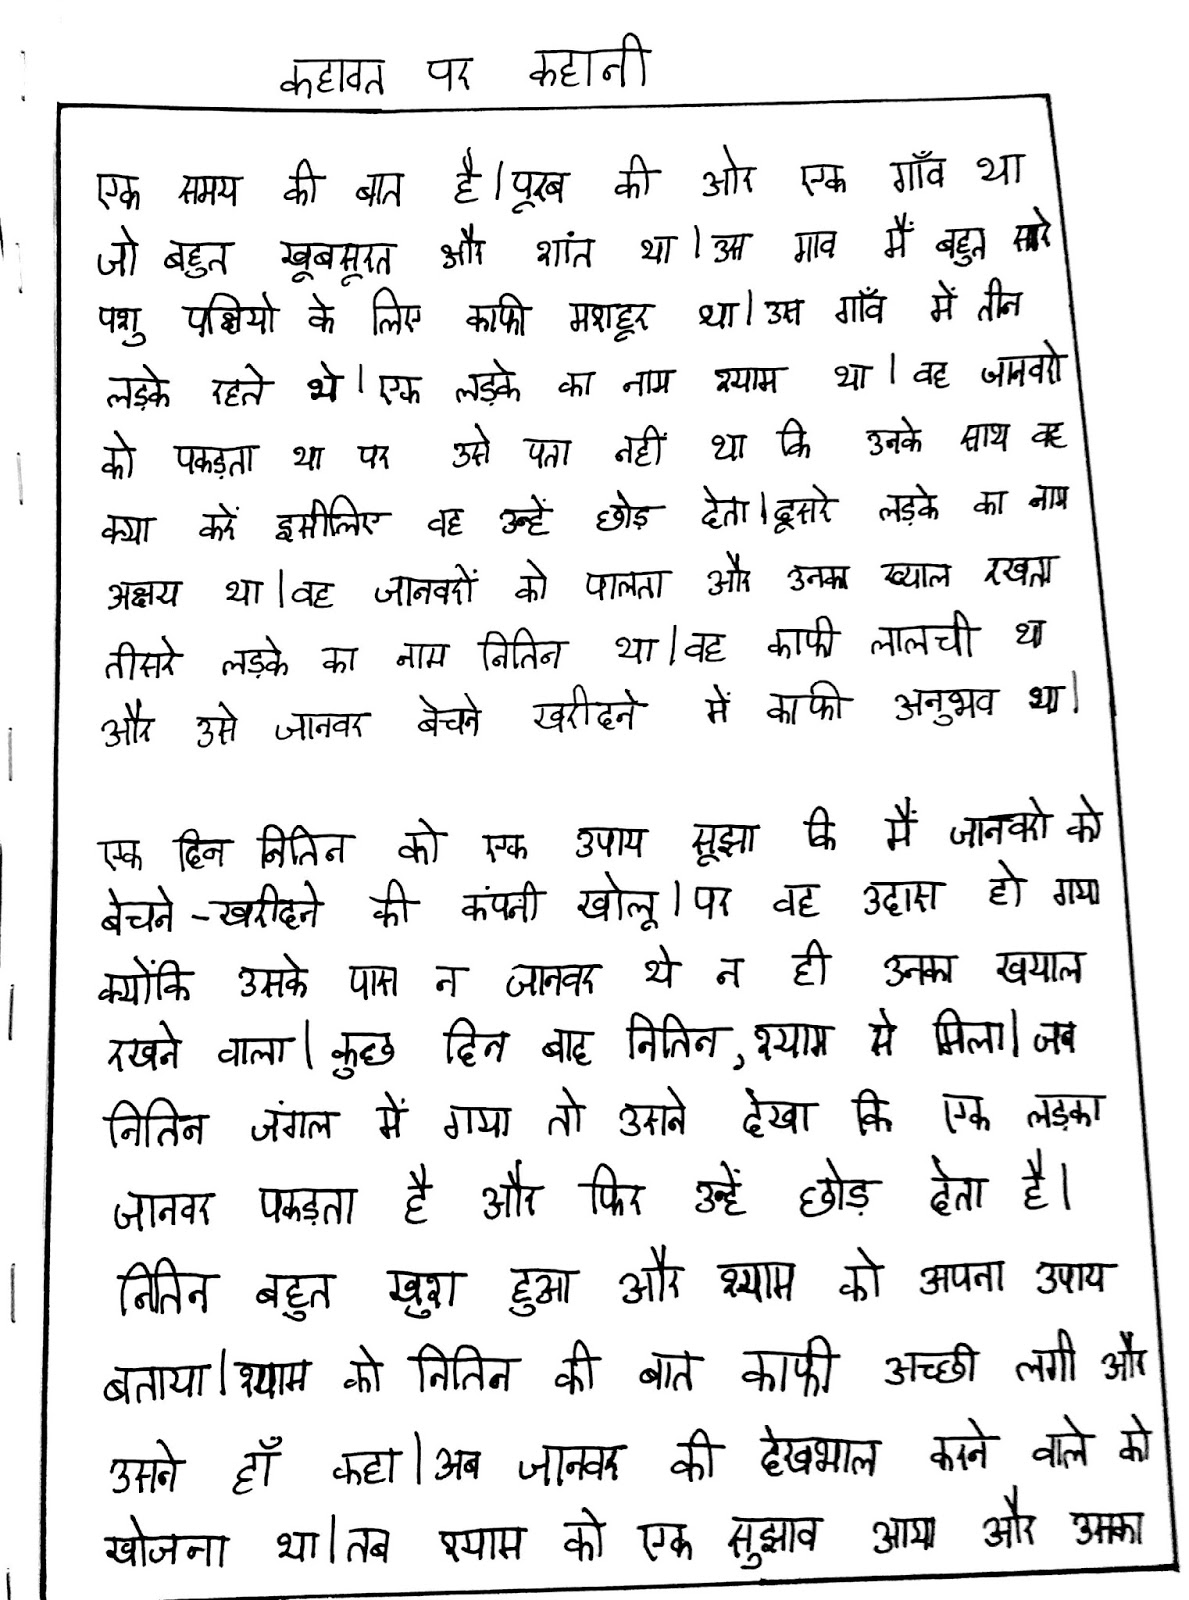 कहावत पर कहानी
एक समय की बात है। पूरब की ओर एक गाँव था
जो बहुत खूबसूरत और शांत था। उस गाव मैं बहुत सारे
पशु पक्षियो के लिए काफी मशहूर था। उस गाँव में तीन
लड़के रहते थे। एक लड़के का नाम श्याम था। वह जानवरो
को पकड़ता था पर उसे पता नहीं था कि उनके साथ वह
क्या करें इसीलिए वह उन्हें छोड़ देता। दूसरे लड़के का नाम
अक्षय था। वह जानवरों को पालता और उनका ख्याल रखता
तीसरे लड़के का नाम नितिन था। वह काफी लालची था
और उसे जानवर बेचने खरीदने में काफी अनुभव था।
एक दिन नितिन को एक उपाय सूझा कि मैं जानवरो को
बेचने -खरीदने की कंपनी खोलू। पर वह उदास हो गया
क्योंकि उसके पास न जानवर थे न ही उनका खयाल
रखने वाला। कुछ दिन बाद नितिन, श्याम से मिला। जब
नितिन जंगल में गया तो उसने देखा कि एक लड़का
जानवर पकड़ता है और फिर उन्हें छोड़ देता है।
नितिन बहुत खुश हुआ और श्याम को अपना उपाय
बताया। श्याम को नितिन की बात काफी अच्छी लगी और
उसने हाँ कहा। अब जानवर की देखभाल करने वाले को
खोजना था। तब श्याम को एक सुझाव आया और उसका